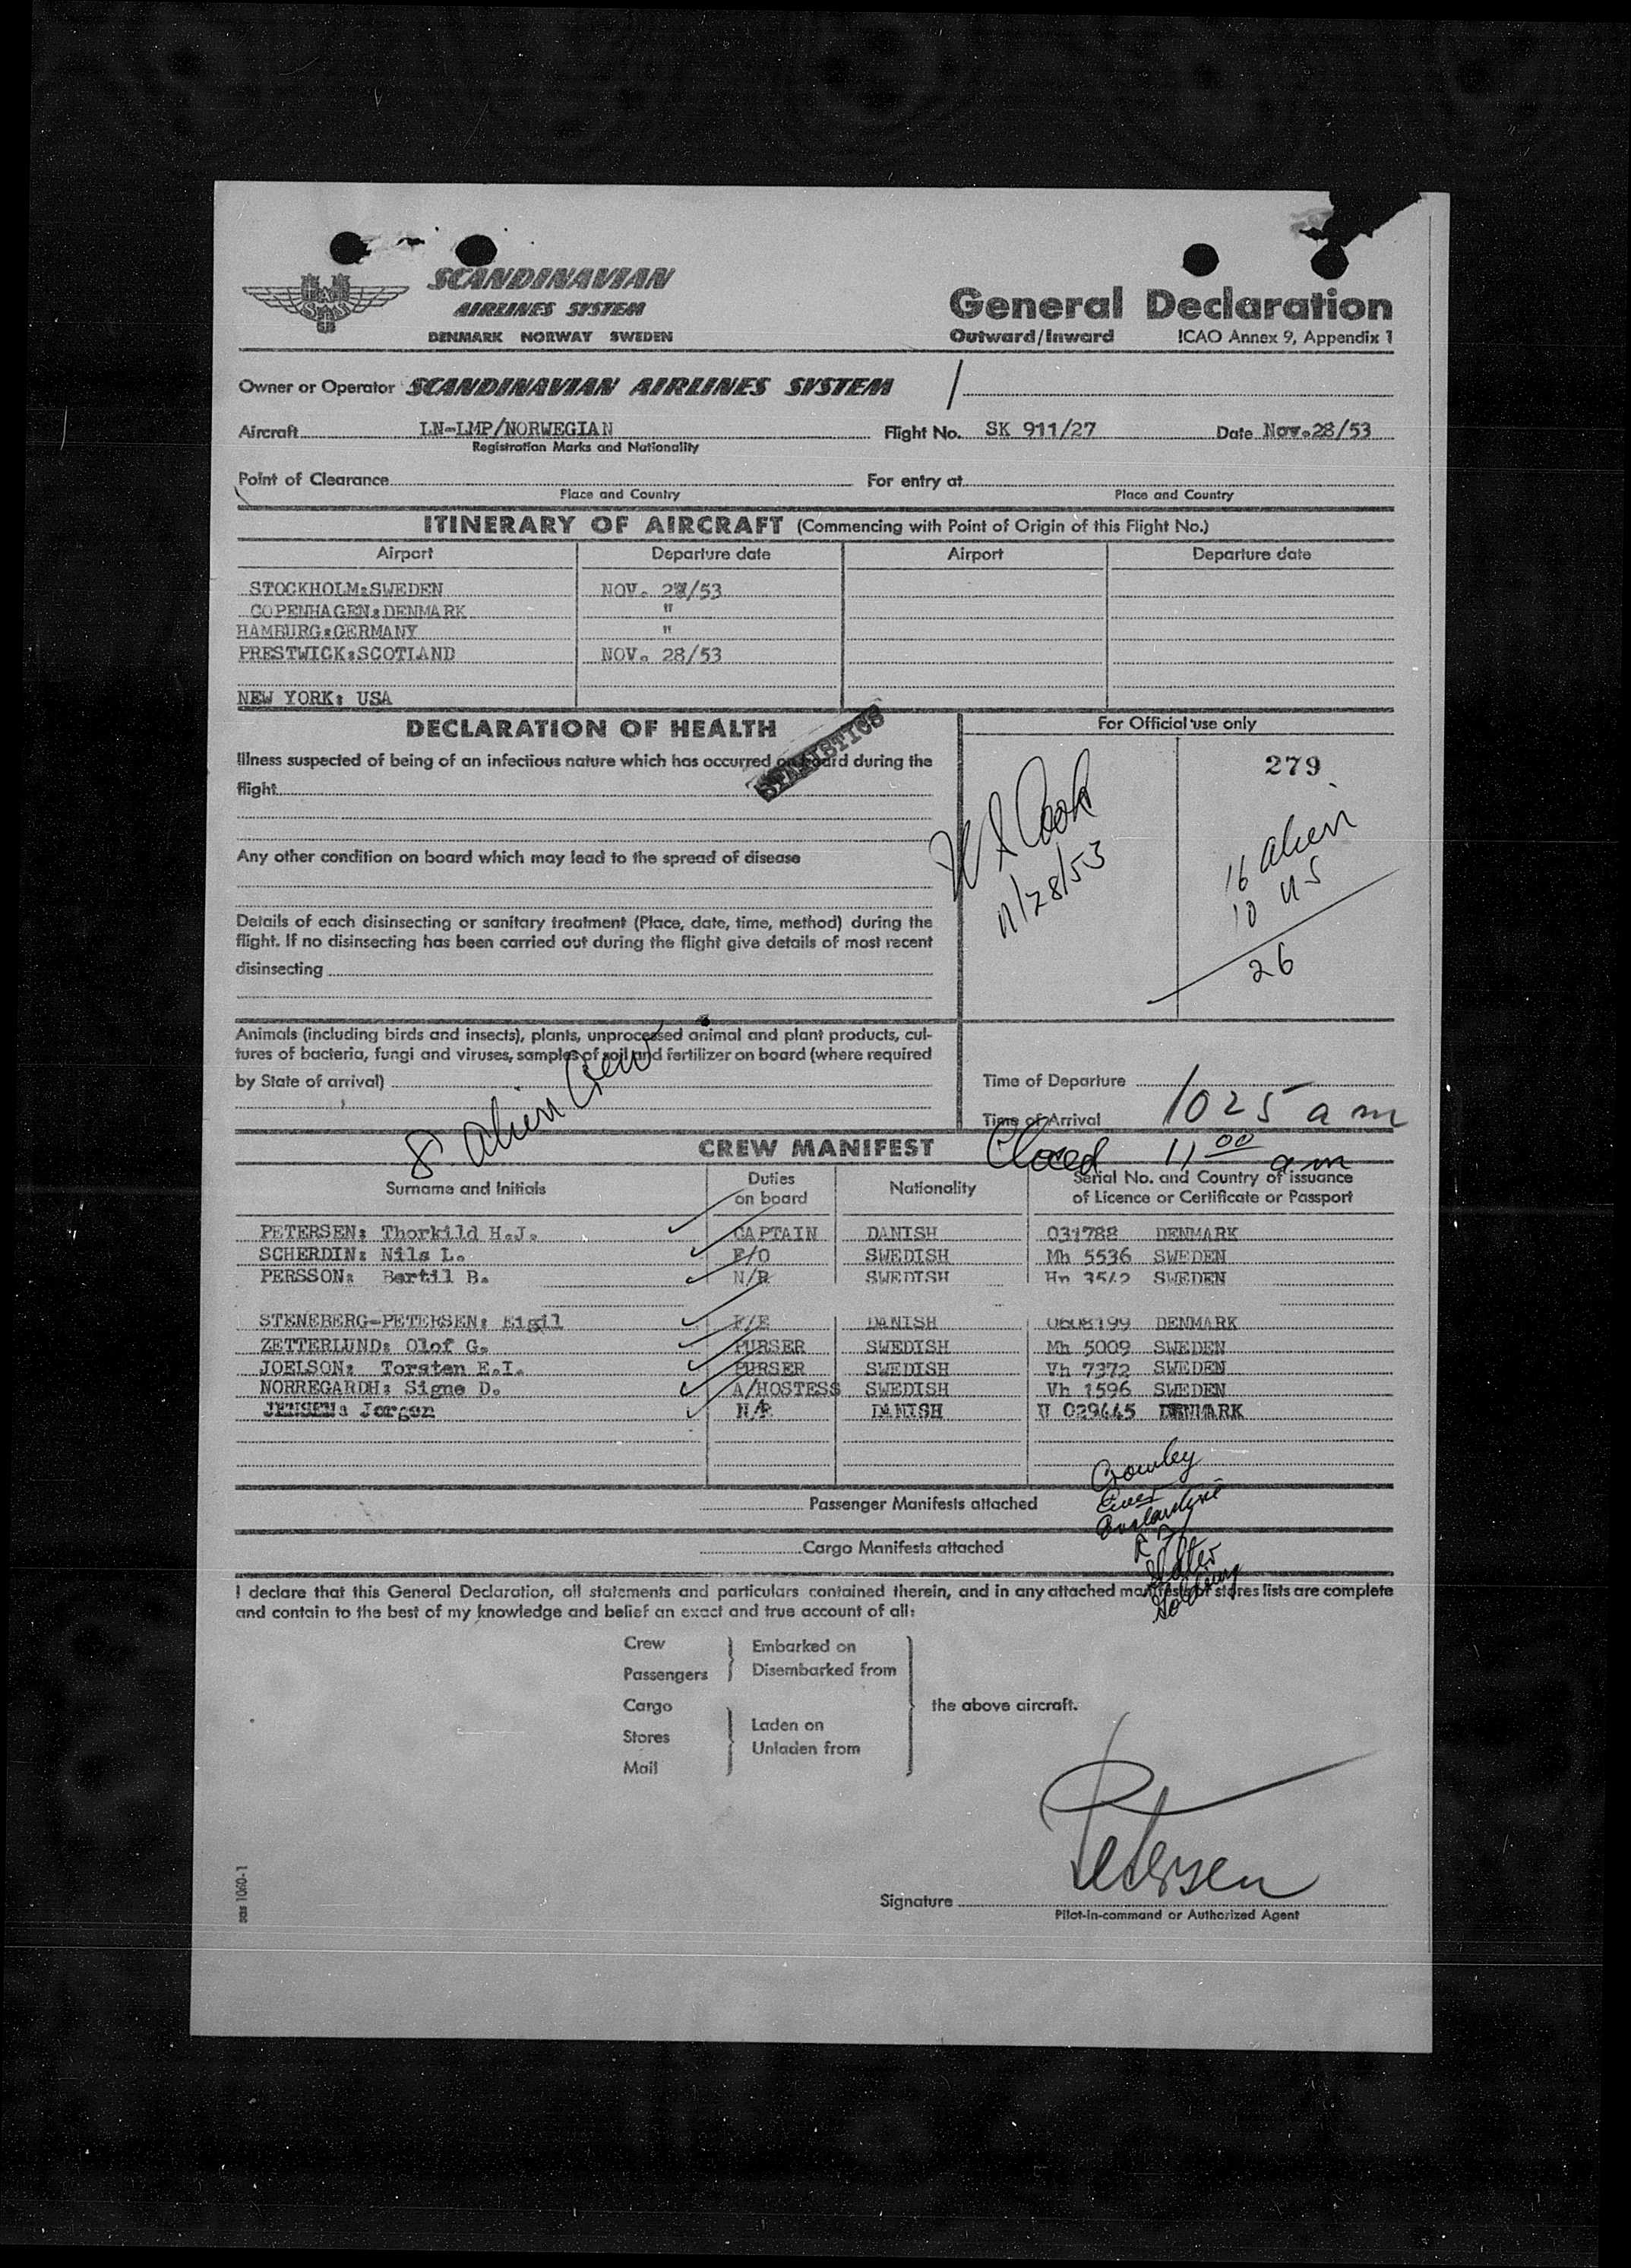 SCANDINAVIAN
AIRLINES SYSTEM
DENMARK NORWAY SWEDEN
General Declaration
Outward/Inward ICAO Annex 9, Appendix 1
Owner or Operator SCANDINAVIAN AIRLINES SYSTEM
Aircraft LN-LMP/NORWEGIAN Flight No. SK 911/27 Date Nov.28/53
Registration Marks and Nationality
Point of Clearance For entry at
Place and Country Place and Country
ITINERARY OF AIRCRAFT (Commencing with Point of Origin of this Flight No.)
Airport Departure date Airport Departure date
STOCKHOLM:SWEDEN NOV. 27/53
COPENHAGEN:DENMARK "
HAMBURG:GERMANY "
PRESTWICK:SCOTLAND NOV. 28/53
NEW YORK: USA
DECLARATION OF HEALTH
STATISTICS
For Official use only
Illness suspected of being of an infectious nature which has occurred on board during the
flight
Any other condition on board which may lead to the spread of disease
Details of each disinsecting or sanitary treatment (Place, date, time, method) during the
flight. If no disinsecting has been carried out during the flight give details of most recent
disinsecting
279
Cook
11/28/53
16 alien
10 US
26
Animals (including birds and insects), plants, unprocessed animal and plant products, cul-
tures of bacteria, fungi and viruses, samples of soil and fertilizer on board (where required
by State of arrival)
8 alien Crew
Time of Departure
Time of Arrival 1025 am
Closed 11 00 am
CREW MANIFEST
Surname and Initials Duties on board Nationality Serial No. and Country of issuance
of Licence or Certificate or Passport
PETERSEN: Thorkild H.J. CAPTAIN DANISH 031788 DENMARK
SCHERDIN: Nils L. F/O SWEDISH Mh 5536 SWEDEN
PERSSON: Bertil B. N/R SWEDISH Hn 3542 SWEDEN
STENEBERG-PETERSEN: Eigil F/E DANISH 0608199 DENMARK
ZETTERLUND: Olof G. PURSER SWEDISH Mh 5009 SWEDEN
JOELSON: Torsten E.I. PURSER SWEDISH Vh 7372 SWEDEN
NORREGARDH: Signe D. A/HOSTESS SWEDISH Vh 1596 SWEDEN
JENSEN: Jorgen N/R DANISH U 029445 DENMARK
Crowley
Passenger Manifests attached
Cargo Manifests attached
I declare that this General Declaration, all statements and particulars contained therein, and in any attached manifests or stores lists are complete
and contain to the best of my knowledge and belief an exact and true account of all:
Crew Embarked on
Passengers Disembarked from
Cargo the above aircraft.
Stores Laden on
Unladen from
Mail
Petersen
Signature
Pilot-in-command or Authorized Agent
sas 1060-1